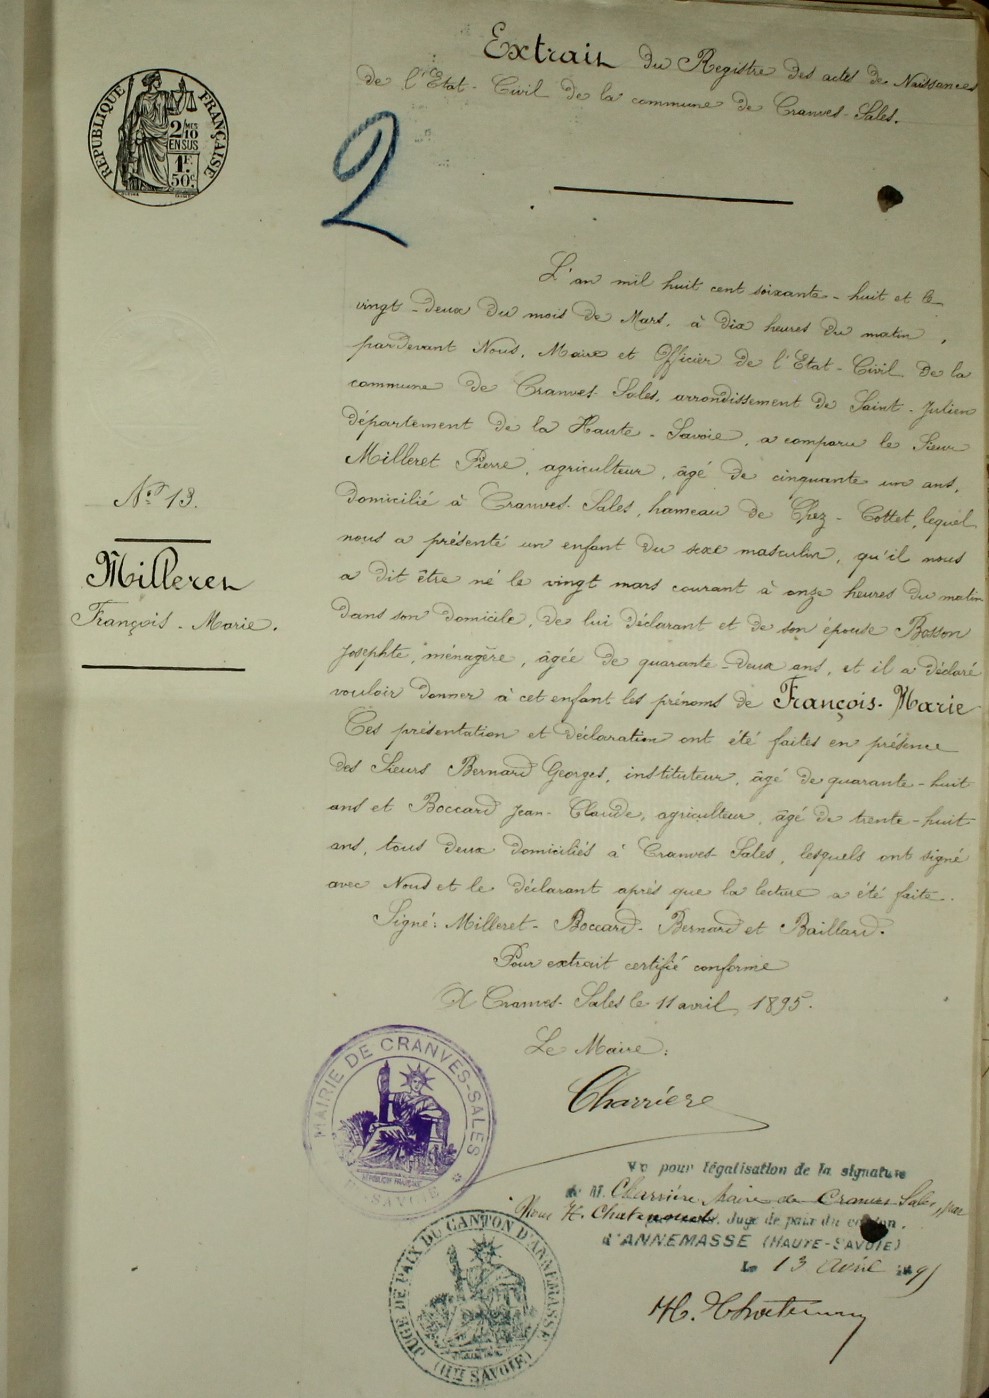 Extrait du Registre des actes de Naissances
de l'Etat-Civil de la commune de Cranves-Sales.
RÉPUBLIQUE FRANÇAISE
2/10 MES
EN SUS
1F.
50c.
2
L'an mil huit cent soixante-huit et le
vingt-deux du mois de Mars, à dix heures du matin,
pardevant Nous, Maire et Officier de l'Etat-Civil de la
commune de Cranves-Sales, arrondissement de Saint-Julien
département de la Haute-Savoie, a comparu le Sieur
Milleret Pierre, agriculteur, âgé de cinquante un ans,
domicilié à Cranves-Sales, hameau de Chez-Cottet, lequel
nous a présenté un enfant du sexe masculin, qu'il nous
a dit être né le vingt mars courant à onze heures du matin
dans son domicile, de lui déclarant et de son épouse Bosson
Josephte, ménagère, âgée de quarante-deux ans, et il a déclaré
vouloir donner à cet enfant les prénoms de François-Marie
Ces présentation et déclaration ont été faites en présence
des Sieurs Bernard Georges, instituteur, âgé de quarante-huit
ans et Boccard Jean-Claude, agriculteur, âgé de trente-huit
ans, tous deux domiciliés à Cranves-Sales, lesquels ont signé
avec Nous et le déclarant après que la lecture a été faite.
Signé: Milleret-Boccard-Bernard et Baillard.
Nº 13.
Milleret
François-Marie.
Pour extrait certifié conforme
A Cranves-Sales le 11 avril 1895.
Le Maire:
Charrière
MAIRIE DE CRANVES-SALES
RÉPUBLIQUE FRANÇAISE
H-SAVOIE
Vu pour légalisation de la signature
de M. Charrière Maire de Cranves-Sales, par
Nous H. Juge de paix du canton
d'ANNEMASSE (HAUTE-SAVOIE)
Le 13 Avril 1895
JUGE DE PAIX DU CANTON D'ANNEMASSE
(Hte SAVOIE)